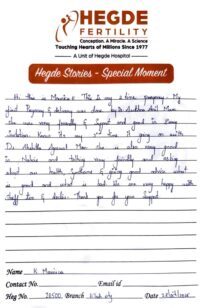 HEGDE
FERTILITY
Conception. A Miracle. A Science
Touching Hearts of Millions Since 1977
A Unit of Hegde Hospital
Hegde Stories - Special Moment
Hi this is Mounica. This is my 2 time pregnancy. My
first Pregnancy & delivery was done by Dr. Mam
She was very friendly & Support and good in
Know it's my 2nd time it going on with
Dr. Akhila Mam she is also very good
in Nature and talking very friendly and asking
about our health and giving good advice what
is good and what is bad. We are very happy with
Staff also & doctors. Thank you for your Support
Name K. Mounica
Contact No. Email id
Heg No. 20500 Branch Date